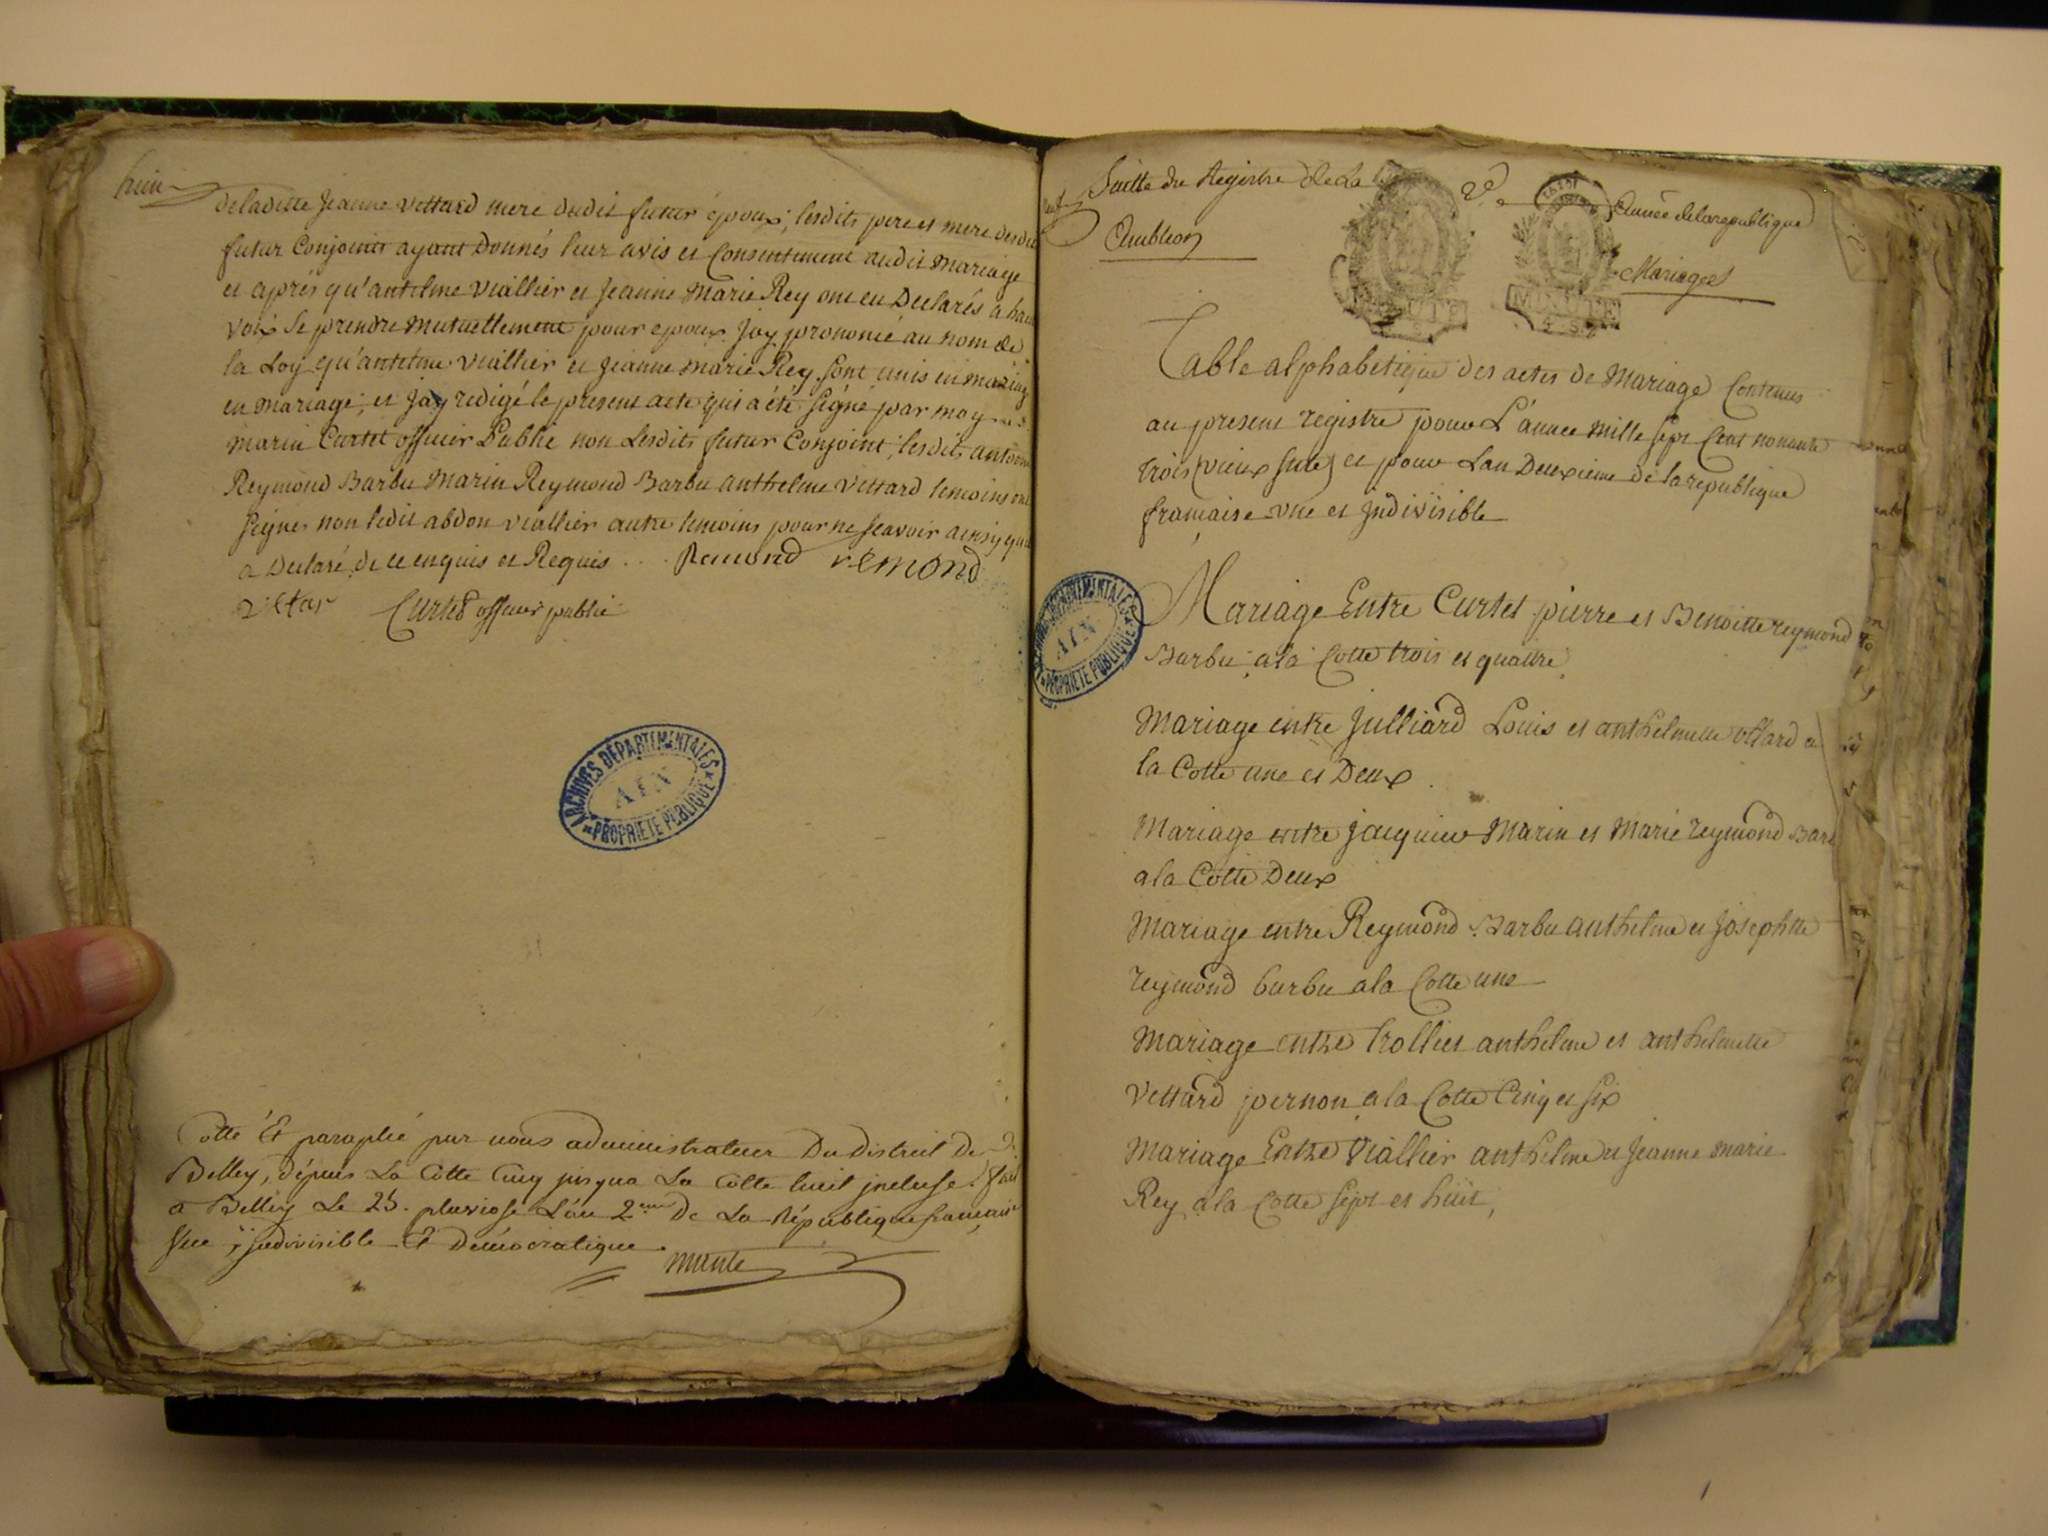 huit
deladitte jeanne vettard mere dudit futur époux, lesdits pere et mere desdit
futur Conjoints ayant Donnés leur avis et Consentement audit Mariage
et aprés qu'antelme viallier et jeanne Marie Rey ont eu Declarés a haute
voix Se prendre Mutuellement pour epoux, jay prononcé au nom de
la Loy qu'antelme viallier et jeanne marie Rey Sont unis en mariag
en mariage, et jay redigé le present acte qui a été Signé par moy
marin Curtet officier Public non Lesdits futur Conjoint, lesdits antoine
Reymond Barbu Marin Reymond Barbu anthelme vettard temoins ont
Signés non ledit abdon viallier autre temoins pour ne Scavoir ainsy quil
a Declaré de ce enquis et Requis . . . Remond remond
vetar Curtet officier public
ARCHIVES DEPARTEMENTALES
AIN
PROPRIETE PUBLIQUE
Cotté Et paraphé par nous administrateur Du district de
Belley, depuis La Cotte Cinq jusqua La Cotte huit incluse. fait
a Belley Le 25. pluviose L'an 2eme De La République francaise
Une, indivisible Et Democratique.
Suitte du Registre de La 2e année de la republique
Ambleon
Mariages
MINUTE
Table alphabetique des actes de Mariage Contenus
au present registre pour L'année mille sept Cent nonante
trois (vieux Stile) et pour Lan Deuxieme de la republique
francaise une et Indivisible
ARCHIVES DEPARTEMENTALES
AIN
PROPRIETE PUBLIQUE
Mariage Entre Curtet pierre et Benoitte reymond
Barbu a la Cotte trois et quattre
Mariage entre Julliard Louis et anthelmette ollard a
la Cotte une et Deux
Mariage entre Jacquier Marin et Marie reymond Bar
a la Cotte Deux
Mariage entre Reymond Barbu anthelme et josephte
reymond barbu a la Cotte une
Mariage entre trollier anthelme et anthelmette
vettard pernon a la Cotte Cinq et Six
Mariage Entre Viallier anthelme et jeanne marie
Rey a la Cotte Sept et huit,